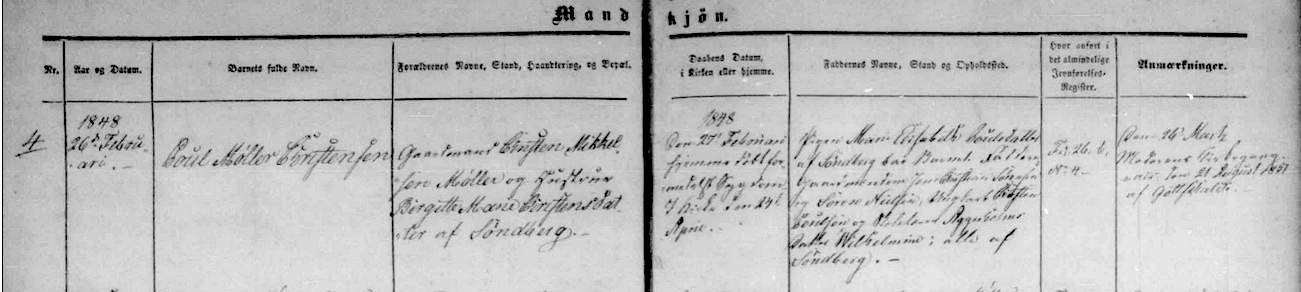 Mandkjön.
Nr.
Aar og Datum.
Barnets fulde Navn.
Forældrenes Navne, Stand, Haandtering, og Bopæl.
Daabens Datum,
i Kirken eller hjemme.
Faddernes Navne, Stand og Opholdssted.
Hvor anført i
det almindelige
Jevnførelses-
Register.
Anmærkninger.
4
1848
26d Februa-
ari. -
Poul Møller Christensen
Gaardmand Christen Mikkel-
sen Møller og Hustrue
Birgitte Marie Christensdat-
ter af Söndberg. -
1848
Den 27d Februari
hjemmedöbt for-
medelst Sygdom
I Kirke den 24d
April. -
Pigen Mane Elisabeth Poulsdatter
af Söndberg bar Barnet. Faddere:
Gaardmændene Jens Christian Sörensen
og Sören Nielsen, Ungkarl Christen
Poulsen og
Datter Wilhelmine; alle af
Söndberg. -
Fol. 26. b.
No 4. -
Den 26d Marts
Moderens Kirkegang.
vacc. den 21 August 1851
af Gottschalck. -